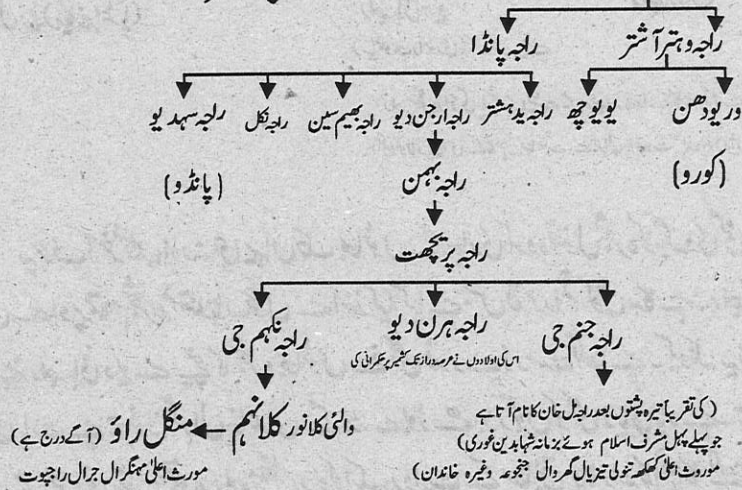 راجہ دہتر آشتر راجہ پانڈا
دریودھن یویوچھ راجہ یدہشتر راجہ ارجن دیو راجہ بھیم سین راجہ نکل راجہ سہدیو
(کورو) راجہ بہمن (پانڈو)
راجہ پریچھت
راجہ جنم جی راجہ ہرن دیو راجہ نکہم جی
اس کی اولادوں نے عرصہ دراز تک کشمیر پر حکمرانی کی
(کی تقریباً تیرہ پشتوں بعد راجہ مل خان کا نام آتا ہے
جو پہلے پہل مشرف اسلام ہوئے بزمانہ شہابدین غوری)
موروث اعلیٰ کھکھہ تنولی تیزیال گھروال جنجوعہ وغیرہ خاندان)
والئی کلانور کلانہم منگل راؤ (آگے درج ہے)
مورث اعلیٰ مہنگرال جرال راجپوت